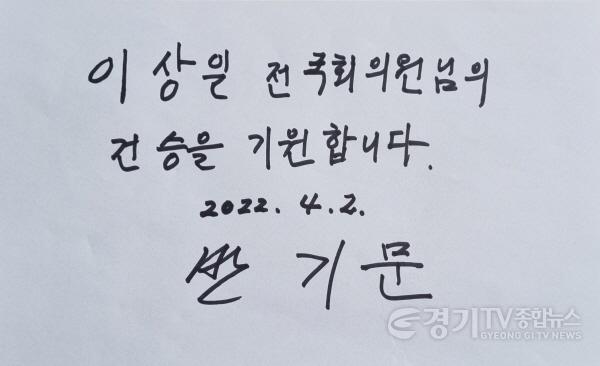 이상일 전 국회의원님의
건승을 기원합니다.
2022. 4. 2.
반기문
경기TV종합뉴스
GYEONG GI TV NEWS